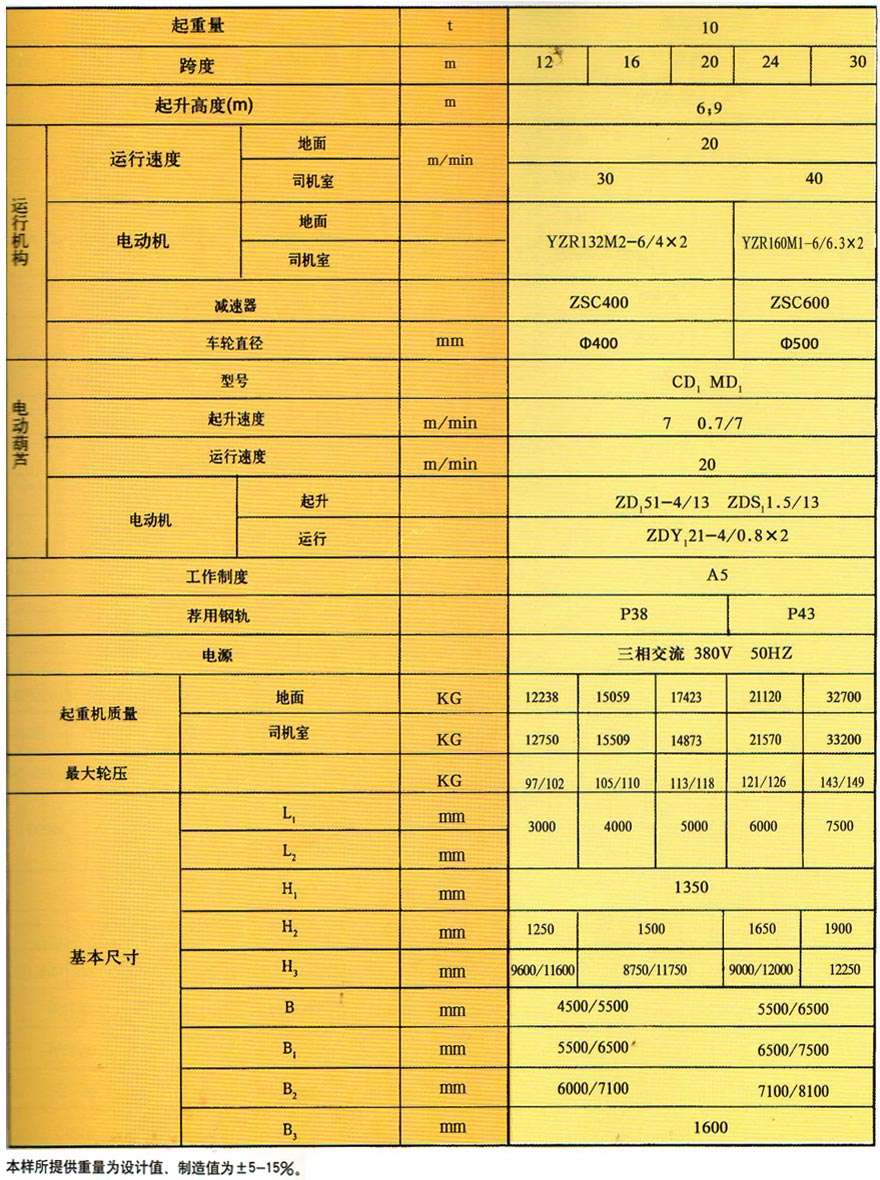 起重量 t 10
跨度 m 12 16 20 24 30
起升高度(m) m 6,9
运行机构 运行速度 地面 m/min 20
司机室 30 40
电动机 地面 YZR132M2-6/4×2 YZR160M1-6/6.3×2
司机室
减速器 ZSC400 ZSC600
车轮直径 mm Φ400 Φ500
电动葫芦 型号 CD₁ MD₁
起升速度 m/min 7 0.7/7
运行速度 m/min 20
电动机 起升 ZD₁51-4/13 ZDS₁1.5/13
运行 ZDY₁21-4/0.8×2
工作制度 A5
荐用钢轨 P38 P43
电源 三相交流 380V 50HZ
起重机质量 地面 KG 12238 15059 17423 21120 32700
司机室 KG 12750 15509 14873 21570 33200
最大轮压 KG 97/102 105/110 113/118 121/126 143/149
基本尺寸 L₁ mm 3000 4000 5000 6000 7500
L₂ mm
H₁ mm 1350
H₂ mm 1250 1500 1650 1900
H₃ mm 9600/11600 8750/11750 9000/12000 12250
B mm 4500/5500 5500/6500
B₁ mm 5500/6500 6500/7500
B₂ mm 6000/7100 7100/8100
B₃ mm 1600
本样所提供重量为设计值、制造值为±5-15%。